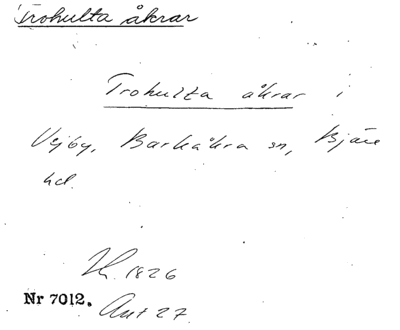 Trohulta åkrar
Trohulta åkrar i
Vejby, Barkåkra sn, Bjäre
hd.
H. 1826
Nr 7012.
Ant 27